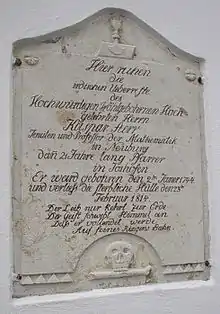 Hier ruhen
die
irdischen Ueberreste
des
Hochwürdigen Hoch-
gelehrten Herrn
Kaspar Herr
und Professor der Mathematik
in Neuburg
dan 21 Jahre lang Pfarrer
in
Er ward gebohren den 2ten Jäner 1744
und verließ die sterbliche Hülle den 25
Februar 1814
Der Leib nur kehrt zur Erde
Der Geist schwebt Himmel an
Daß er vollendet werde
Auf seines Bahn